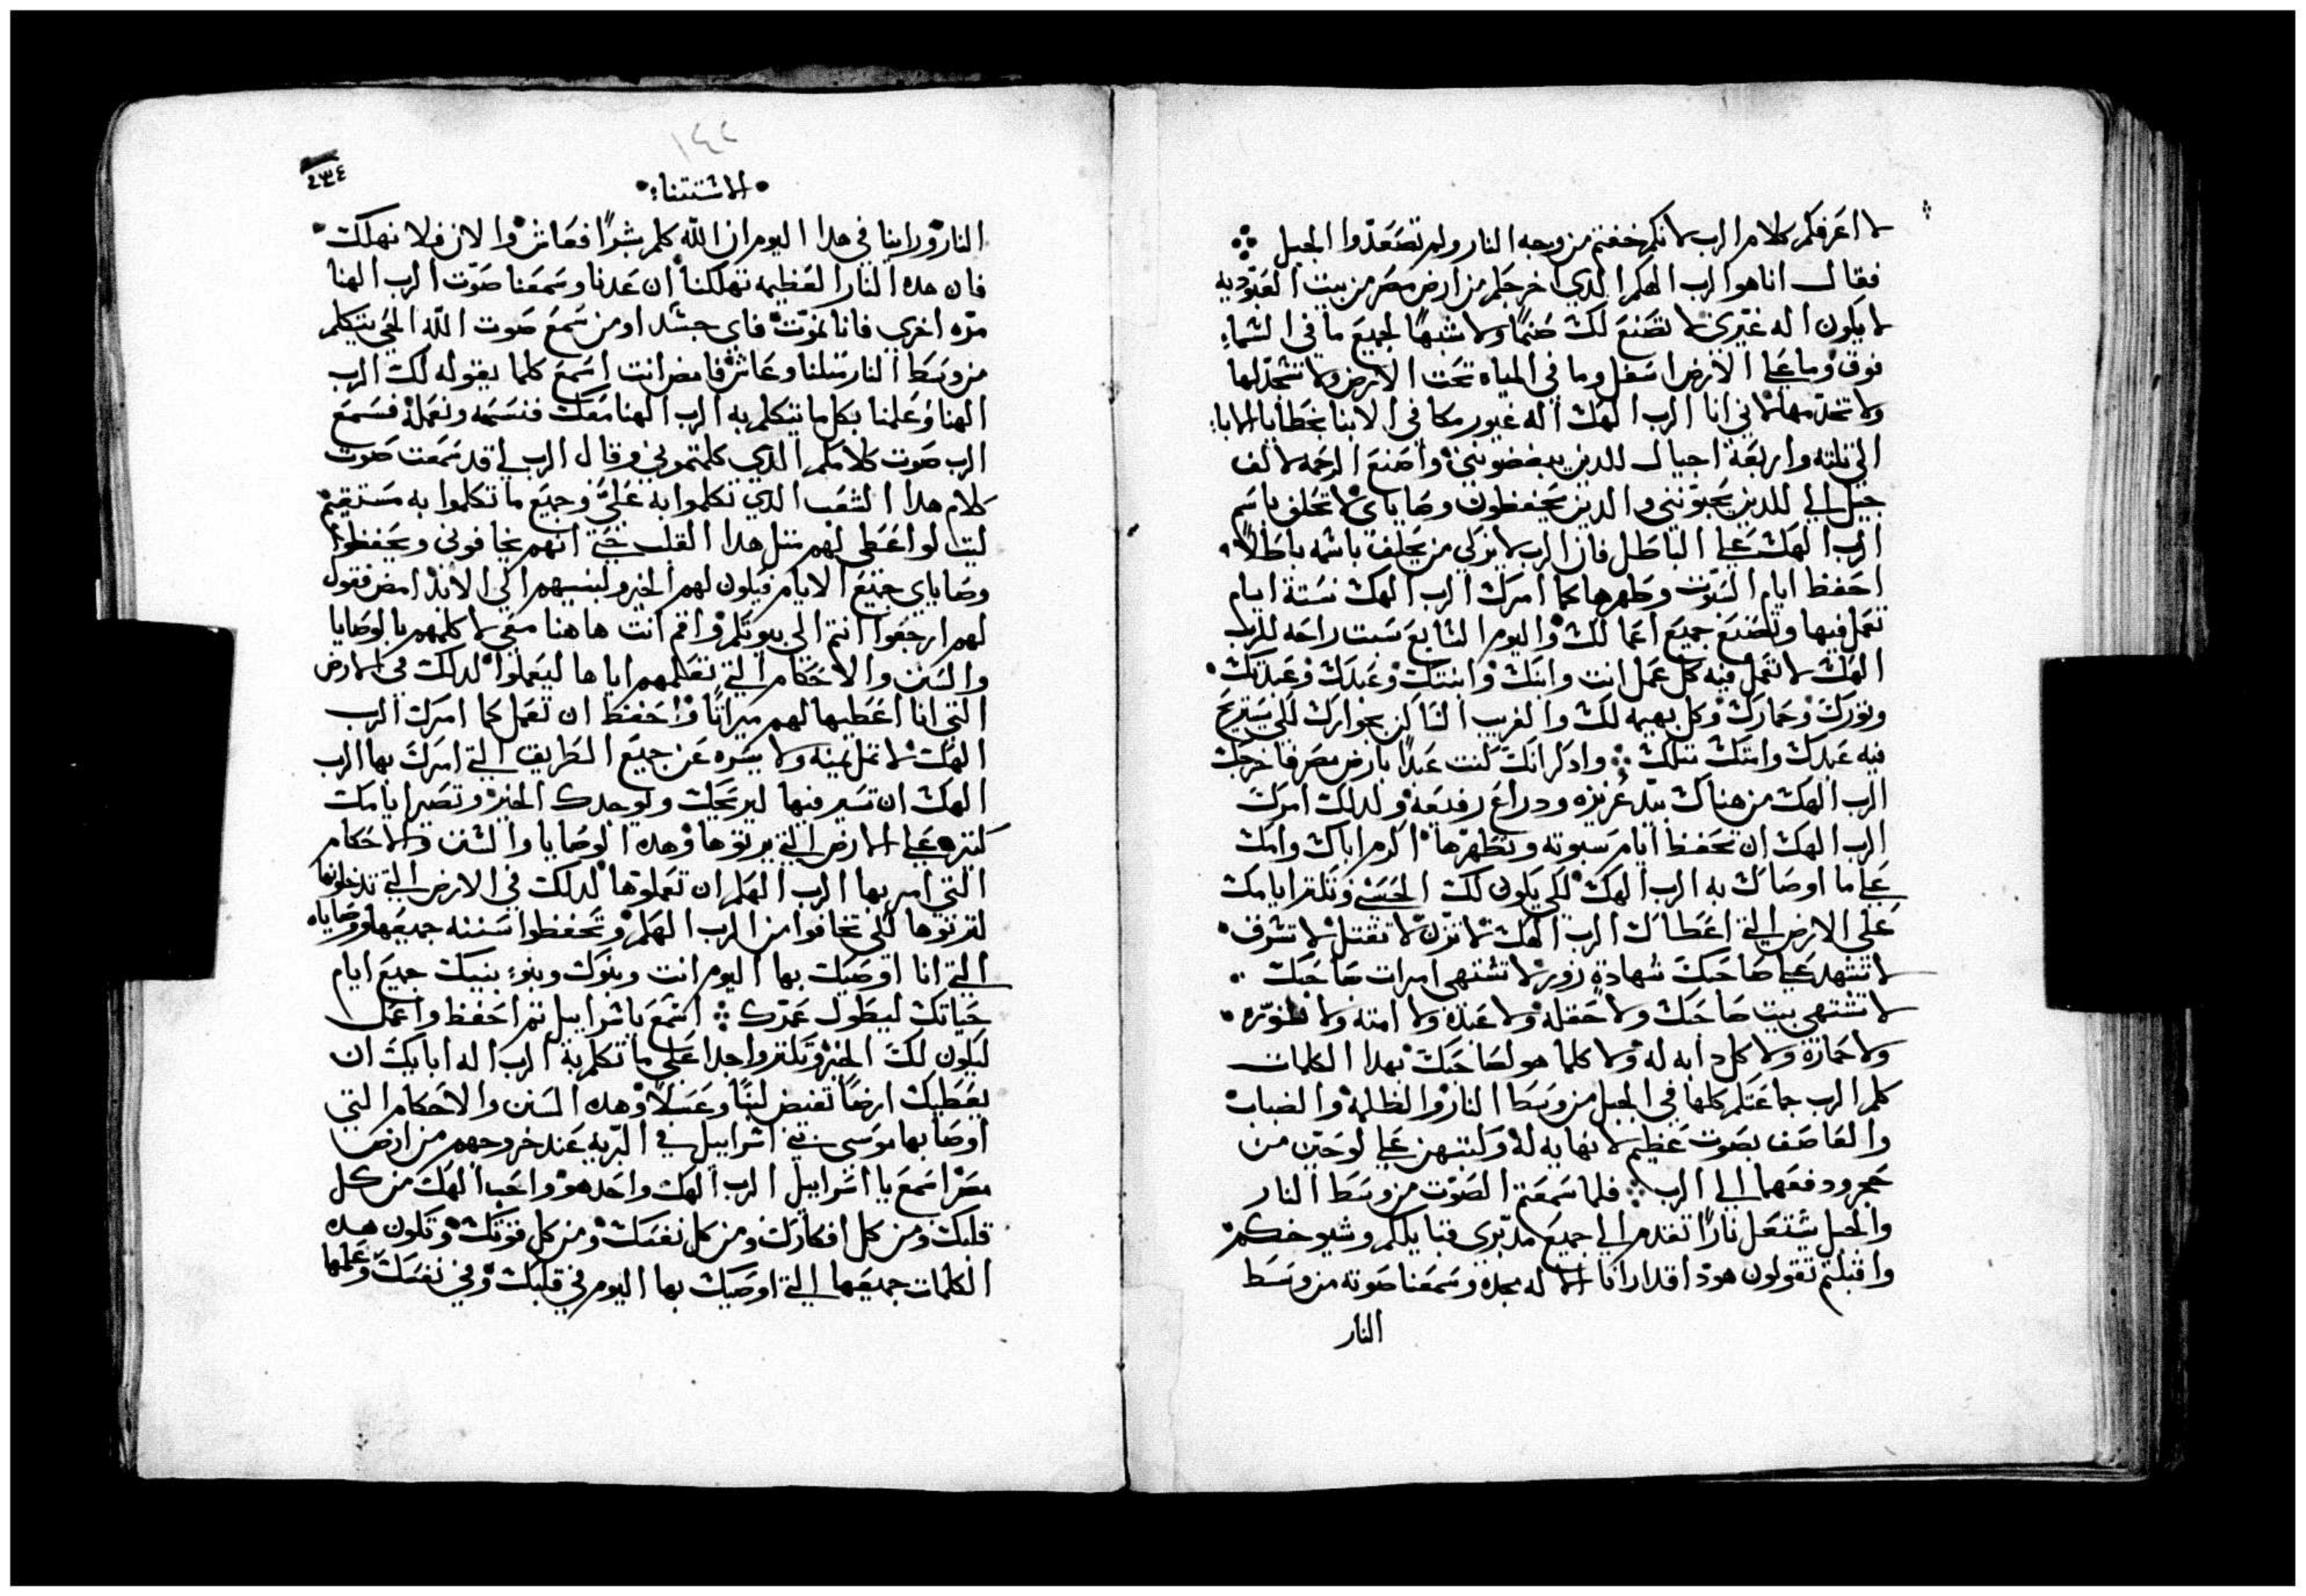 لا اعرفكم كلام الرب لانكم خفتم من وجه النار ولم تصعدوا الجبل
فقال انا هو الرب الهكم الدي اخرجكم من ارض مصر من بيت العبوديه
لا يكون اله غيري لا تصنع لك صنمًا ولا شبهًا لجميع ما في السماء
فوق وما على الارض اسفل وما في المياه تحت الارض ولا تسجد لها
ولا تخدمها لاني انا الرب الهك اله غيور مكافي الابنا بخطايا الابا
الى تلته واربعة اجيال للدين يبغضونني واصنع الرحمه لالف
جيل الى للدين يحبونني والدين يحفظون وصاياي لا تحلف باسم
الرب الهك على الباطل فان الرب لا يزكي من يحلف باسمه باطلاً
احفظ ايام السبوت وطهرها كما امرك الرب الهك ستة ايام
تعمل فيها وتصنع جميع اعمالك واليوم السابع سبت راحه للرب
الهك لا تعمل فيه كل عمل انت وابنك وابنتك وعبدك وعبدتك
وتورك وحمارك وكل بهيمه لك والغريب الساكن بجوارك لكي يستريح
فيه عبدك وامتك متلك وادكر انك كنت عبدًا بارض مصر فاخرجك
الرب الهك من هناك بيد عزيزه ودراع رفيعه ولدلك امرك
الرب الهك ان تحفظ ايام سبوته وتطهرها اكرم اباك وامك
على ما اوصاك به الرب الهك لكي يكون لك الحسنى وتكتر ايامك
على الارض التي اعطاك الرب الهك لا تزن لا تقتل لا تسرق
لا تشهد على صاحبك شهادة زور لا تشتهي امرات صاحبك
لا تشتهي بيت صاحبك ولا حقله ولا عبده ولا امته ولا توره
ولا حماره ولا كل دابه له ولا كلما هو لصاحبك بهدا الكلمات
كلم الرب جماعتكم كلها في الجبل من وسط النار والظلمة والضباب
والعاصف بصوت عظيم لا نهايه له وكتبهن على لوحين من
حجر ودفعهما الى الرب فلما سمعتم الصوت من وسط النار
والجبل يشتعل نارًا تقدم الى جميع مدبري قبايلكم وشيوخكم
واقبلتم تقولون هودا قد ارانا الاله مجده وسمعنا صوته من وسط
النار
١٤٢
٢٣٤
الاستتناء
النار وراينا في هدا اليوم ان الله كلم بشرًا فعاش والان فلا نهلك
فان هده النار العظيمه تهلكنا ان عدنا وسمعنا صوت الرب الهنا
مره اخرى فانا نموت فاي جسد او من سمع صوت الله الحي يتكلم
من وسط النار متلنا وعاش فامض انت اسمع كلما يقوله لك الرب
الهنا وعلمنا بكل ما يتكلم به الرب الهنا معك فنسمعه ونعمله فسمع
الرب صوت كلامكم الدي كلمتموني وقال الرب لي قد سمعت صوت
كلام هدا الشعب الدي تكلموا به على وجميع ما تكلموا به مستقيم
ليت لو اعطى لهم متل هدا القلب حتى انهم يخافوني ويحفظوا
وصاياي جميع الايام فيكون لهم الخير ولبنيهم الى الابد امض فقول
لهم ارجعوا انتم الى بيوتكم واقم انت هاهنا معي لاكلمهم بالوصايا
والسنن والاحكام التي تعلمهم اياها ليعملوا لدلك في الارض
التي انا اعطيها لهم ميراتًا واحفظ ان تعمل كما امرك الرب
الهك لا تمل يمنه ولا يسره عن جميع الطريق التي امرك بها الرب
الهك ان تسير فيها ليريحك ويوجدك الخير وتصير ايامك
كتيره على الارض التي يرتوها وهده الوصايا والسنن والاحكام
التي امر بها الرب الهكم ان تعملوها لدلك في الارض التي تدخلونها
لترتوها لكي تخافوا من الرب الهكم وتحفظوا سننه جميعها ووصاياه
التي انا اوصيك بها اليوم انت وبنوك وبنوء بنيك جميع ايام
حياتك ليطول عمرك اسمع ياسراييل تم احفظ واعمل
ليكون لك الخير وتكتروا جدا على ما تكلم به الرب اله ابايك ان
يعطيك ارضًا تفيض لبنًا وعسلاً وهده السنن والاحكام التي
اوصا بها موسى بني اسراييل في البريه عند خروجهم من ارض
مصر اسمع يا اسراييل الرب الهك واحد هو واحب الهك من كل
قلبك ومن كل افكارك ومن كل نفسك ومن كل قوتك وتكون هده
الكلمات جميعها التي اوصيك بها اليوم في قلبك وفي نفسك وعلمها